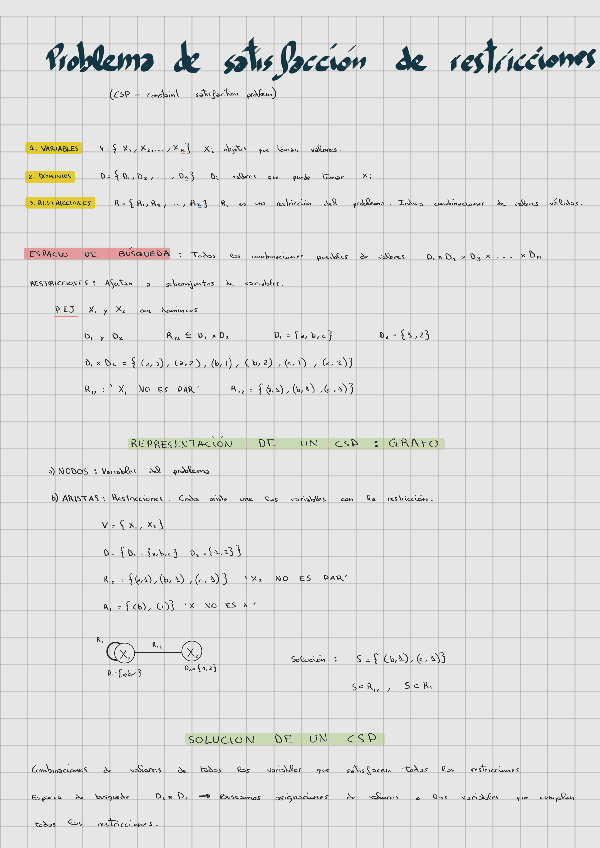 Problema de satisfacción de restricciones
(CSP - constraint satisfaction problem)
1. VARIABLES V = { X₁, X₂, ..., Xₙ } Xᵢ objetos que toman valores.
2. DOMINIOS D = { D₁, D₂, ..., Dₙ } Dᵢ valores que puede tomar Xᵢ
3. RESTRICCIONES R = { R₁, R₂, ..., Rₖ } Rᵢ es una restricción del problema. Indica combinaciones de valores válidos.
ESPACIO DE BÚSQUEDA : Todas las combinaciones posibles de valores D₁ x D₂ x D₃ x ... x Dₙ
RESTRICCIONES : Afectan a subconjuntos de variables.
P.EJ X₁ y X₂ con dominios
D₁ y D₂ R₁₂ ⊆ D₁ x D₂ D₁ = {a, b, c} D₂ = {1, 2}
D₁ x D₂ = { (a, 1), (a, 2), (b, 1), (b, 2), (c, 1), (c, 2) }
R₁₂ : ' X₂ NO ES PAR' R₁₂ = { (a, 1), (b, 1), (c, 1) }
REPRESENTACIÓN DE UN CSP : GRAFO
a) NODOS : Variables del problema
b) ARISTAS : Restricciones. Cada arista une las variables con la restricción.
V = { X₁, X₂ }
D = { D₁ = {a, b, c} D₂ = {1, 2} }
R₁₂ = { (a, 1), (b, 1), (c, 1) } 'X₂ NO ES PAR'
R₁ = { (b), (c) } 'X NO ES A'
R₁ X₁ R₁₂ X₂
D₁ = {a, b, c} D₂ = {1, 2}
Solución : S = { (b, 1), (c, 1) }
S ⊂ R₁₂ , S ⊂ R₁
SOLUCIÓN DE UN CSP
Combinaciones de valores de todas las variables que satisfacen todas las restricciones
Espacio de búsqueda D₁ x D₂ → Buscamos asignaciones de valores a las variables que cumplan
todas las restricciones.